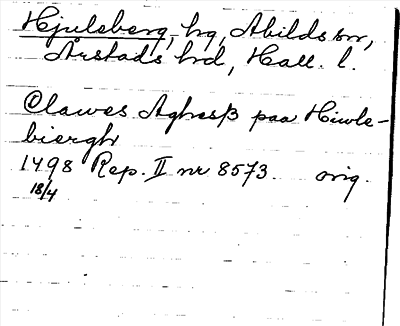 Hjulsberg, hg, Abilds sn,
Årstads hd, Hall. l.
Clawes Aghesß paa Hiwle-
biergh
1498 Rep. II nr 8573. orig.
18/4